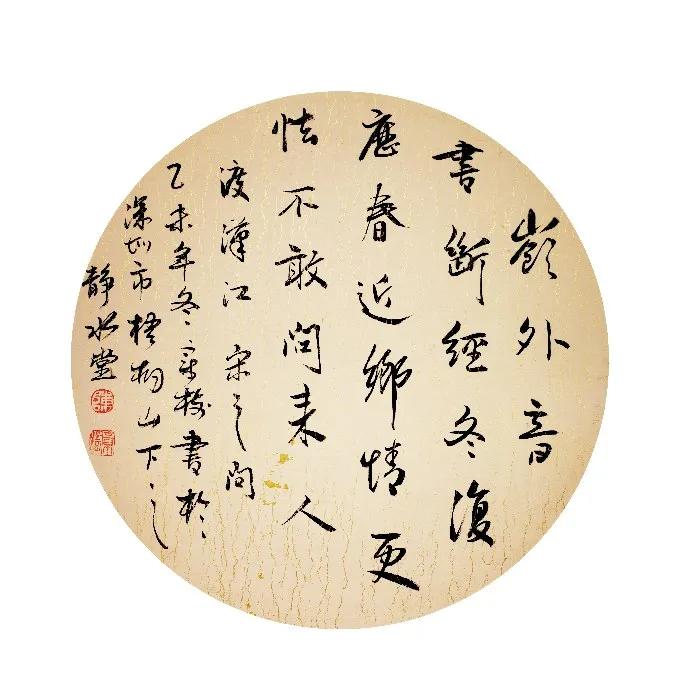 嶺外音
書斷經冬復
歷春近鄉情更
怯不敢問来人
渡漢江 宋之問
乙未年冬書於
深圳市梧桐山下之
靜水堂